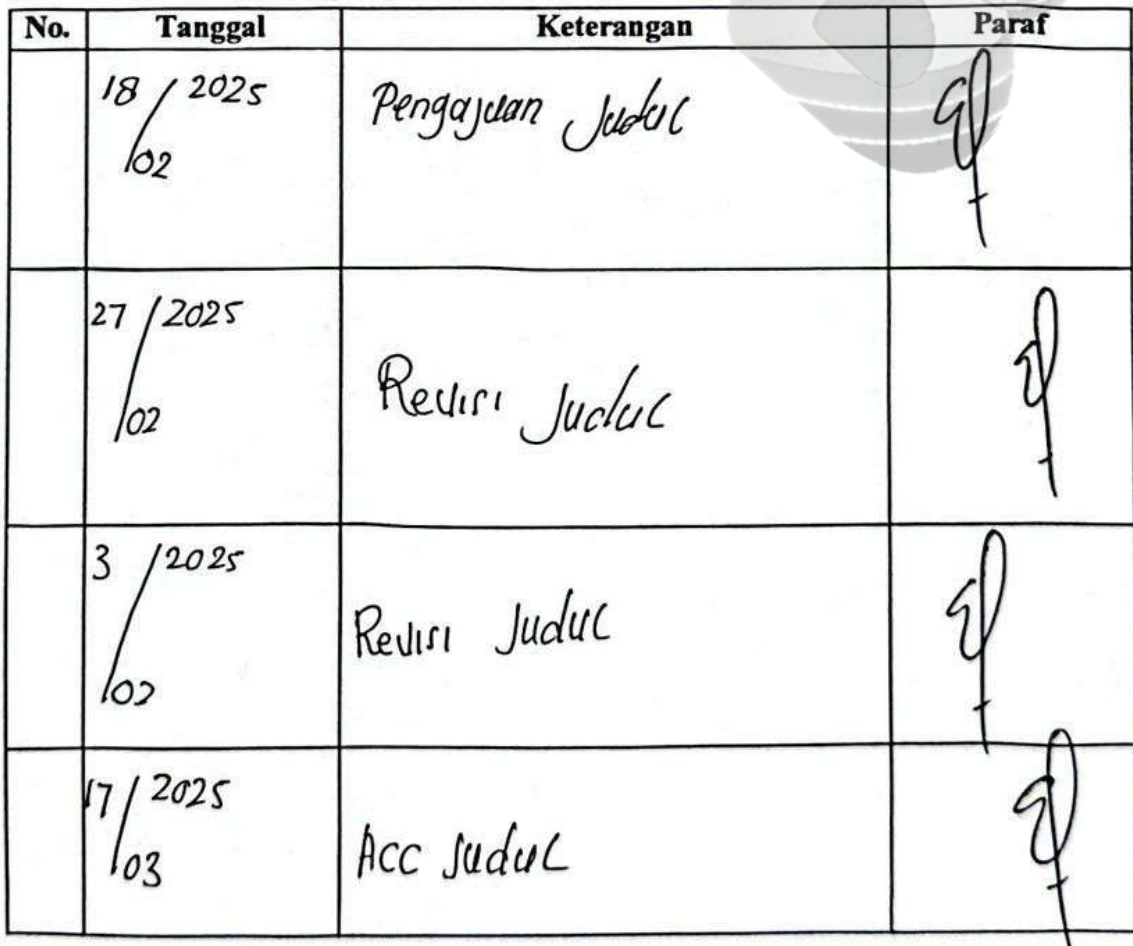 No. Tanggal Keterangan Paraf
18/02 2025 Pengajuan Judul
27/02 2025 Revisi Judul
3/02 2025 Revisi Judul
17/03 2025 ACC Judul